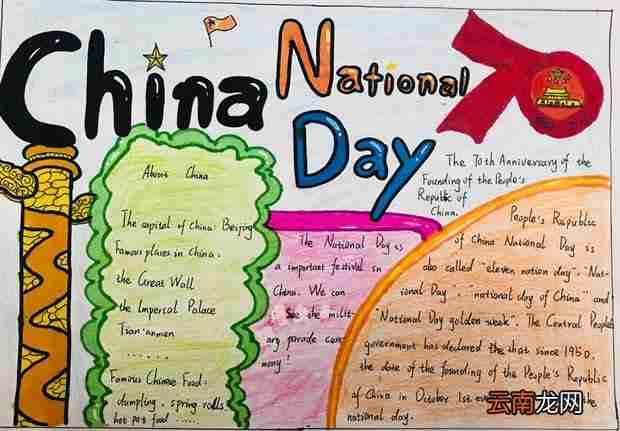 China
National
Day
70
The 70th Anniversary of the
Founding of the People's
Republic of
China.
About China
The capital of China: Beijing
Famous places in China:
the Great Wall
the Imperial Palace
Tian'anmen
......
Famous Chinese Food:
dumpling, spring rolls,
hot pot food .....
The National Day is
a important festival in
China. We can
see the milit-
ary parade cere
mony!
People's Republic
of China National Day is
also called "eleven nation day". "Nat-
ional Day, national day of China" and
"National Day golden week". The Central People
government has declared the that since 1950,
the date of the founding of the People's Republic
of China in October 1st
national day.
云南龙网